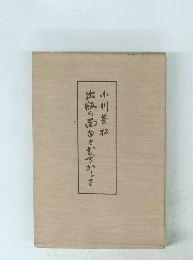 小川菊松
出版の面白さむずかしさ